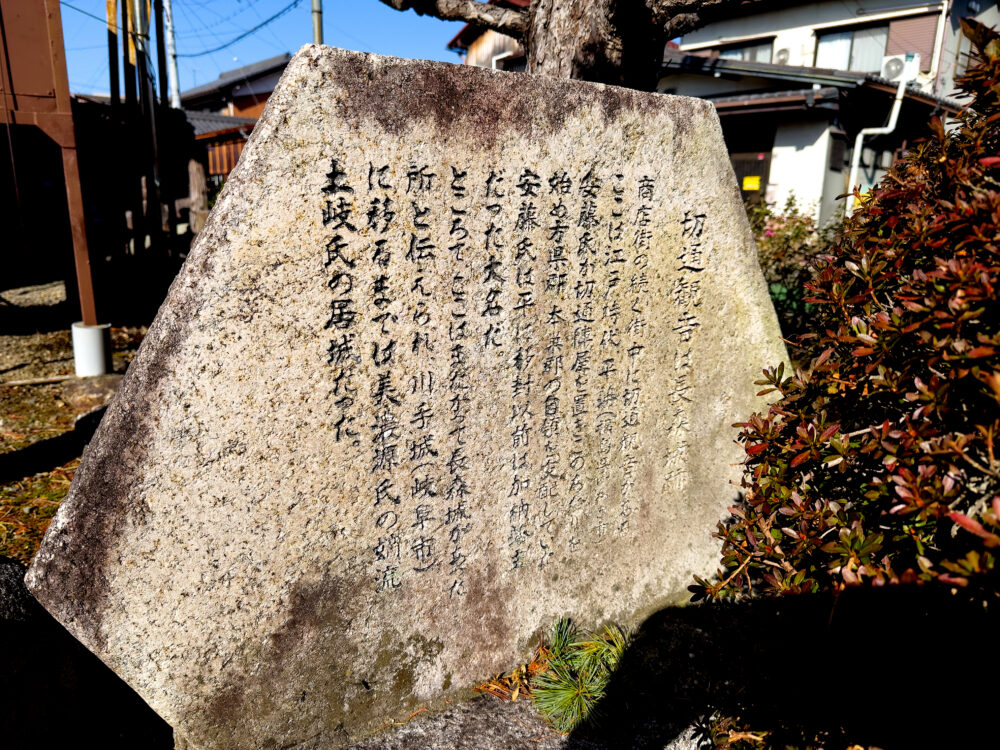 切通観音は長森薬師
商店街の続く街中に切通観音がある
ここは江戸時代平
安藤氏が切通陣屋を置きこのあたりを
始め方県郡本巣郡の自領を支配していた
安藤氏は平に移封以前は加納城主
だった大名だ。
ところでここはまたかつて長森城があった
所と伝えられ川手城(岐阜市)
に移るまでは美濃源氏の嫡流
土岐氏の居城だった。